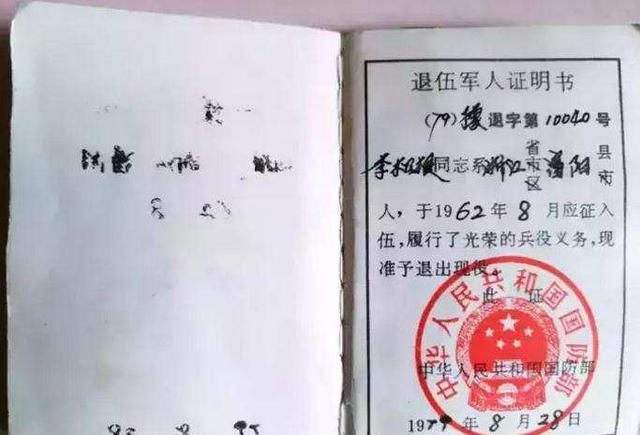 退伍军人证明书
(79)援退字第10040号
同志系浙江省市区 阳县市
人，于1962年8月应征入
伍，履行了光荣的兵役义务，现
准予退出现役。
此证
中华人民共和国国防部
中华人民共和国国防部
1979年8月28日